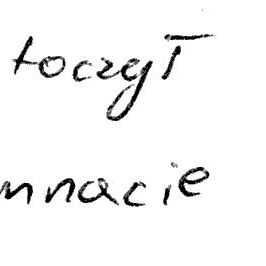 toczył
mnacie